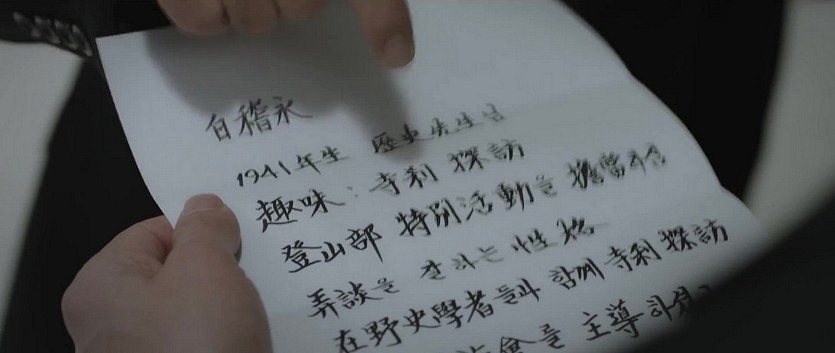 白稽永
1941年生 歷史先生님
趣味: 寺刹 探訪
登山部 特別活動을 擔當하심
弄談을 잘하는 性格
在野史學者들과 함께 寺刹 探訪
會를 主導하셨